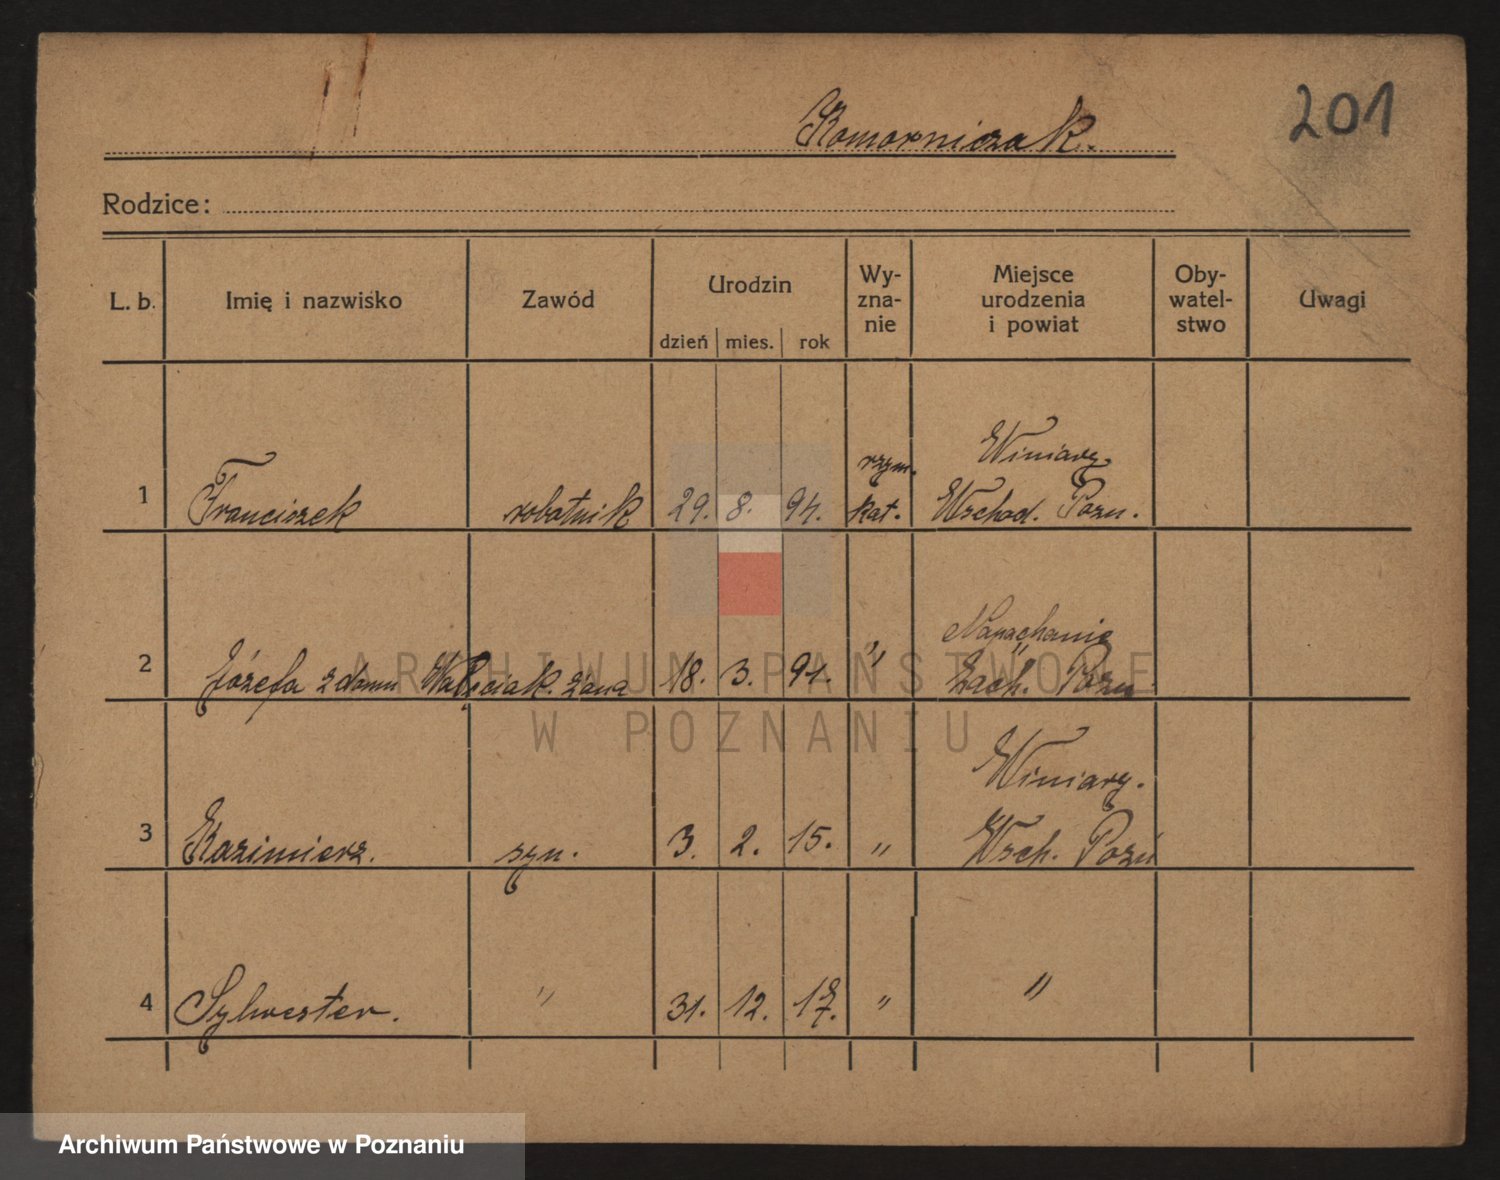 201
Komorniczak.
Rodzice:
L. b. Imię i nazwisko Zawód Urodzin Wy-zna-nie Miejsce urodzenia i powiat Oby-watel-stwo Uwagi
dzień mies. rok
1 Franciszek robotnik 29. 8. 94. rzym. kat. Winiary. Wschod. Pozn.
2 Józefa z domu żona 18. 3. 91. " Napachanie Zach. Pozn.
3 Kazimierz. syn. 3. 2. 15. " Winiary. Wsch. Pozń
4 Sylwester. " 31. 12. "  "
ARCHIWUM PAŃSTWOWE
W POZNANIU
Archiwum Państwowe w Poznaniu